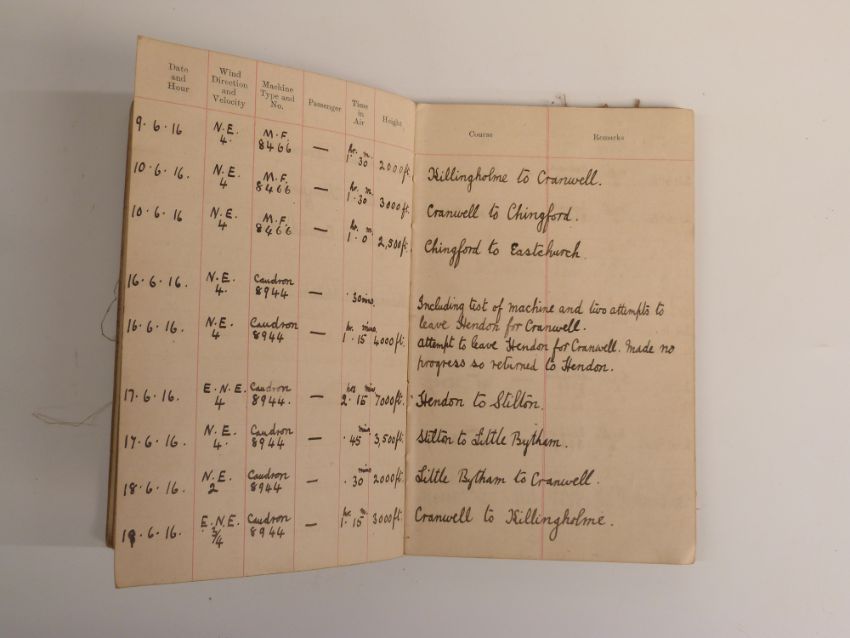 Date and Hour | Wind Direction and Velocity | Machine Type and No. | Passenger | Time in Air | Height. | Course | Remarks
9.6.16 | N.E. 4. | M.F. 8466 | — | hr. m. 1.30 | 2000ft. | Killingholme to Cranwell.
10.6.16. | N.E. 4 | M.F. 8466 | — | hr. m. 1.30 | 3000ft. | Cranwell to Chingford.
10.6.16 | N.E. 4 | M.F. 8466 | — | hr. m. 1.0 | 2,500ft. | Chingford to Eastchurch.
16.6.16. | N.E. 4. | Caudron 8944 | — | .30mins. | Including test of machine and two attempts to
leave Hendon for Cranwell.
16.6.16. | N.E. 4 | Caudron 8944 | — | hr. mins. 1.15 | 4000ft. | attempt to leave Hendon for Cranwell. Made no
progress so returned to Hendon.
17.6.16. | E.N.E. 4 | Caudron 8944. | — | hrs mins 2.15 | 7000ft. | Hendon to Stilton.
17.6.16. | N.E. 4. | Caudron 8944 | — | mins. .45 | 3,500ft. | Stilton to Little Bytham.
18.6.16. | N.E. 2 | Caudron 8944 | — | mins .30 | 2000ft. | Little Bytham to Cranwell.
19.6.16. | E.N.E. 3/4 | Caudron 8944 | — | hr. m. 1.15 | 3000ft. | Cranwell to Killingholme.